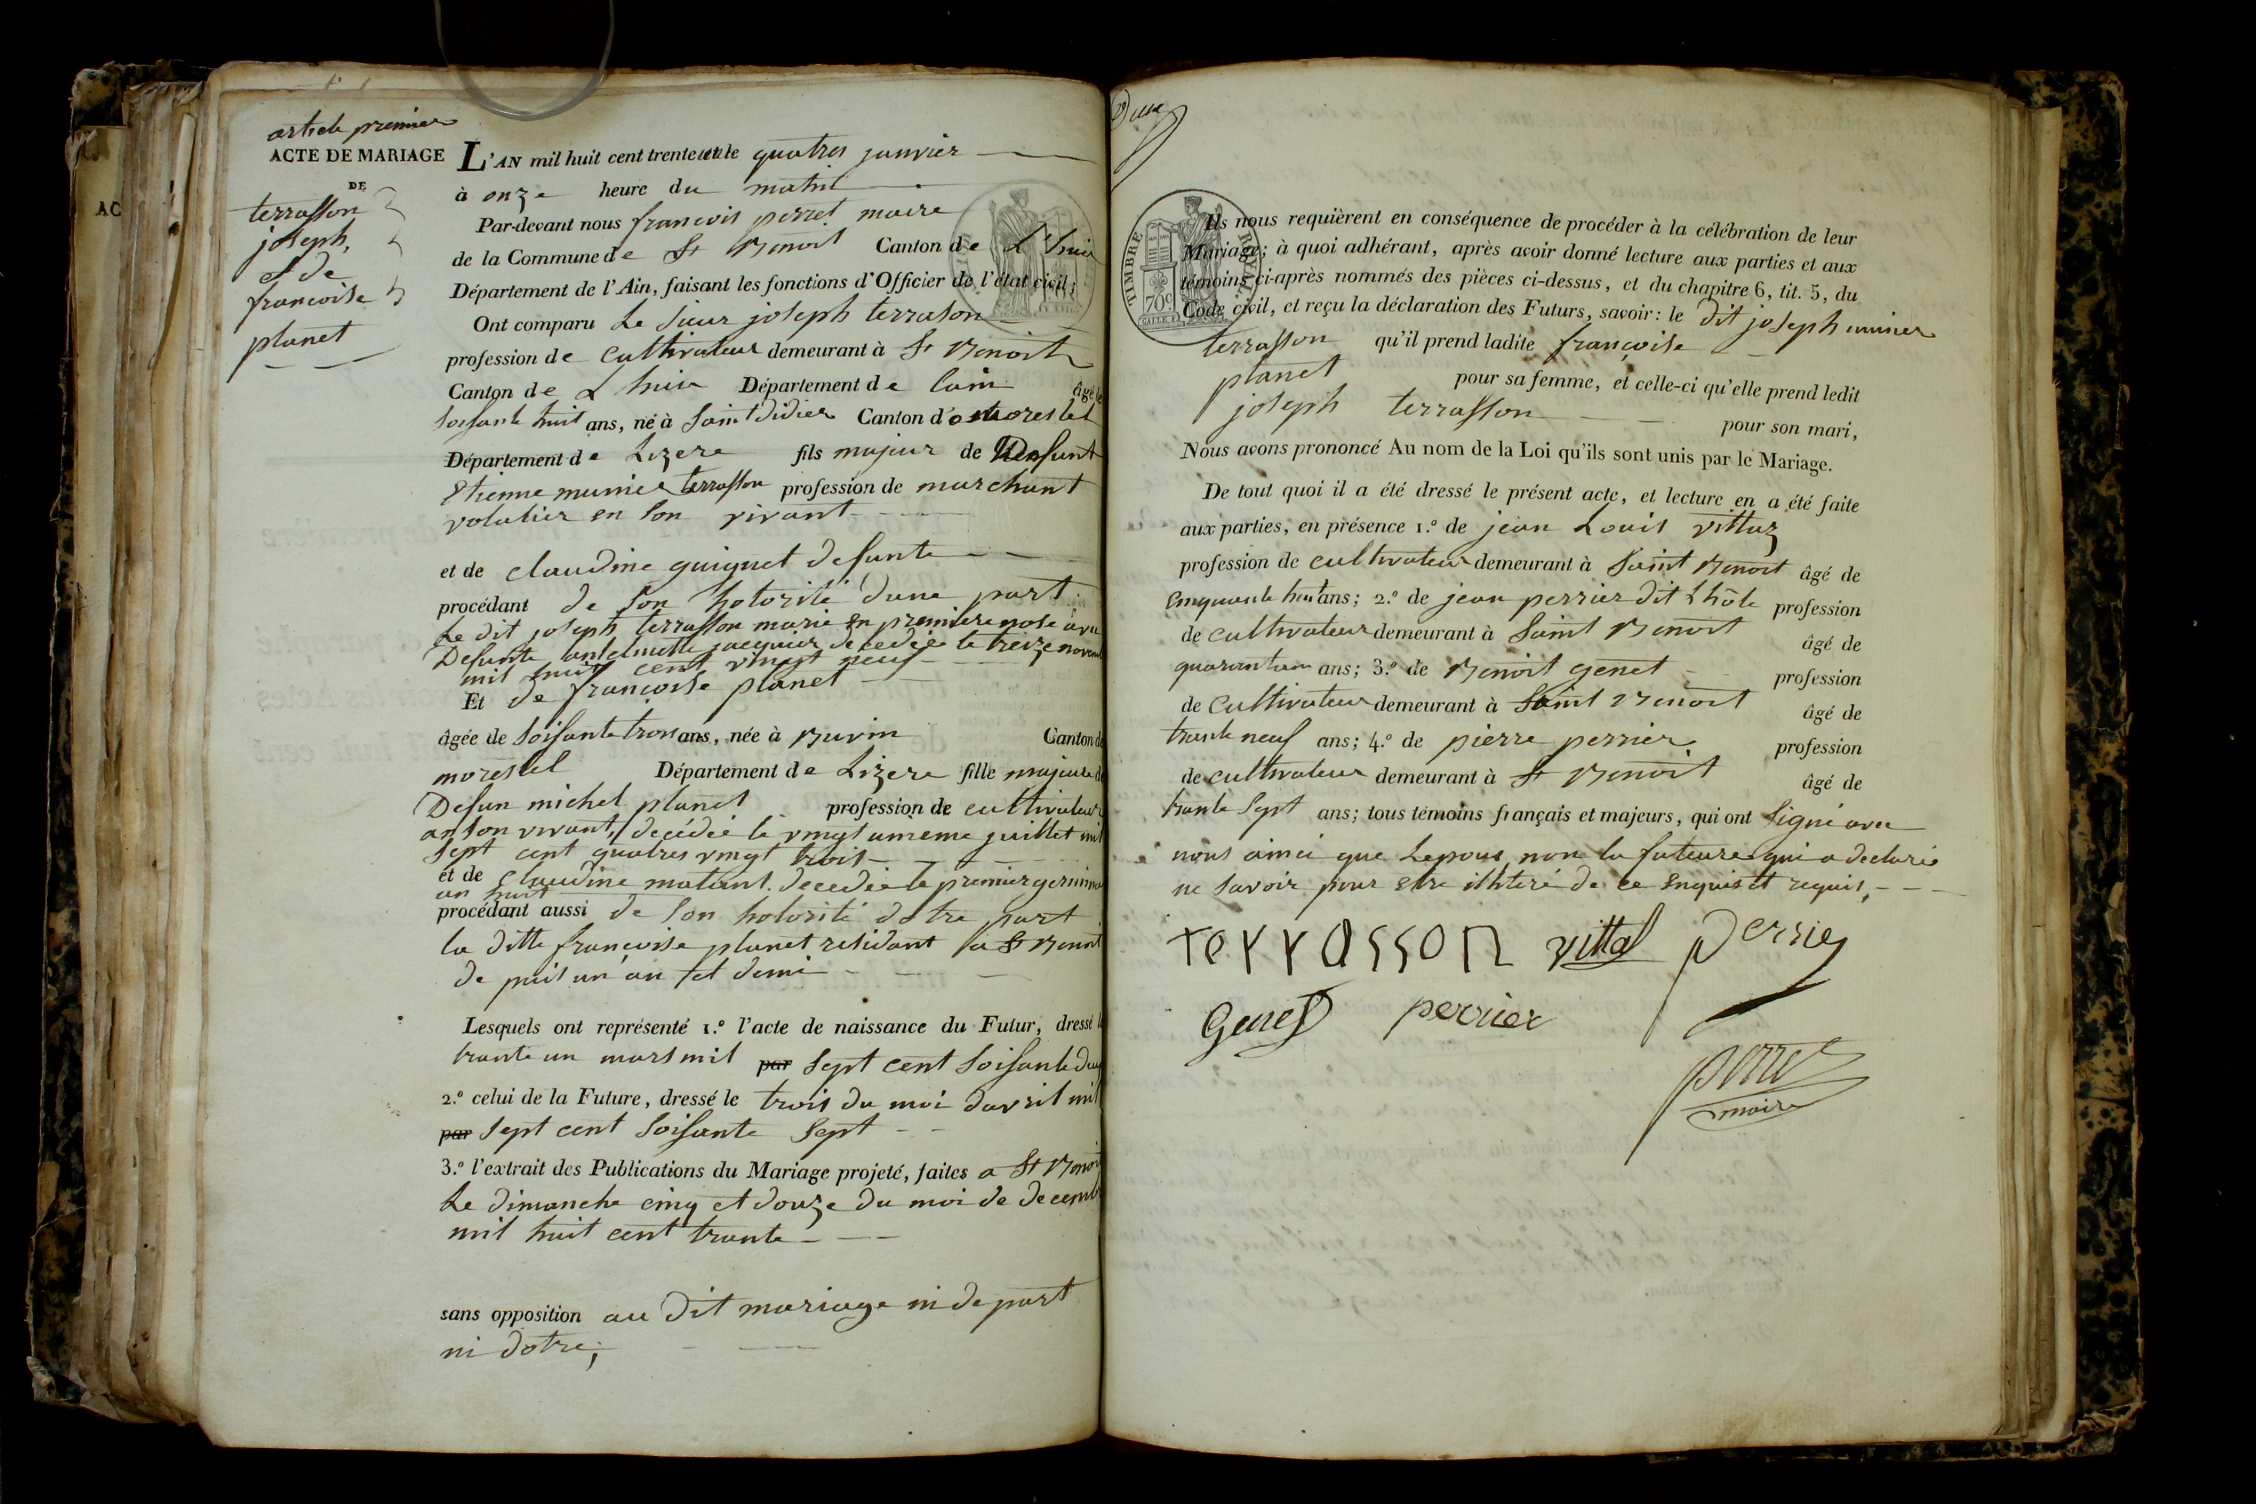 article premier
ACTE DE MARIAGE
DE
terrasson
joseph,
et de
francoise
planet
L'AN mil huit cent trente et un le quatres janvier
à onze heure du matin
Par-devant nous francois perret maire
de la Commune de St Benoit Canton de L'huis
Département de l'Ain, faisant les fonctions d'Officier de l'état civil;
Ont comparu Le sieur joseph terrason
profession de cultivateur demeurant à St Benoit
Canton de L huis Département de lain âgé de
soisante huit ans, né à Saint didier Canton de morestel
Département de Lizere fils majeur de Defunt
Etienne munier terrasson profession de marchant
volatier en son vivant
et de claudine guignet defunte
procédant de son hotorité dune part
Le dit joseph terrasson marié en premiere nose avu
Defunte antelmette jacquier decedée le treize novem
mil huit cent vingt neuf
Et de francoise planet
âgée de soisante trois ans, née à Buvin Canton de
morestel Département de Lizere fille majeure de
Defun michel planet profession de cultivateur
an son vivant, decédée le vingt unieme juillet mil
sept cent quatres vingt trois
et de claudine matant decedée le premier germinal
an huit
procédant aussi de son hotorité dotre part
la ditte francoise planet residant a St Benoit
de puis un an et demi
Lesquels ont représenté 1.º l'acte de naissance du Futur, dressé le
trante un mars mil par sept cent soisante deux
2.º celui de la Future, dressé le trois du moi davril mil
par sept cent soisante sept
3.º l'extrait des Publications du Mariage projeté, faites a St Benoit
Le dimanche cinq et douze du moi de decemb
mil huit cent trante
sans opposition au dit mariage ni de part
ni dotre;
TIMBRE ROYAL
70c
Ils nous requièrent en conséquence de procéder à la célébration de leur
Mariage; à quoi adhérant, après avoir donné lecture aux parties et aux
témoins ci-après nommés des pièces ci-dessus, et du chapitre 6, tit. 5, du
Code civil, et reçu la déclaration des Futurs, savoir: le dit joseph munier
terrasson qu'il prend ladite françoise
planet pour sa femme, et celle-ci qu'elle prend ledit
joseph terrasson pour son mari,
Nous avons prononcé Au nom de la Loi qu'ils sont unis par le Mariage.
De tout quoi il a été dressé le présent acte, et lecture en a été faite
aux parties, en présence 1.º de jean Louis vittaz
profession de cultivateur demeurant à Saint Benoit âgé de
cinquante huit ans; 2.º de jean perrier dit Lhôte profession
de cultivateur demeurant à Saint Benoit âgé de
quarante un ans; 3.º de Benoit genet profession
de cultivateur demeurant à Saint Benoit âgé de
trante neuf ans; 4.º de pierre perrier profession
de cultivateur demeurant à St Benoit âgé de
trante sept ans; tous témoins français et majeurs, qui ont signé avu
nous ainci que Lepous non la futeure qui a declaré
ne savoir pour etre illiteré de ce Enquis et requis,
terrasson vittal perrier
Genet perrier
perret
maire